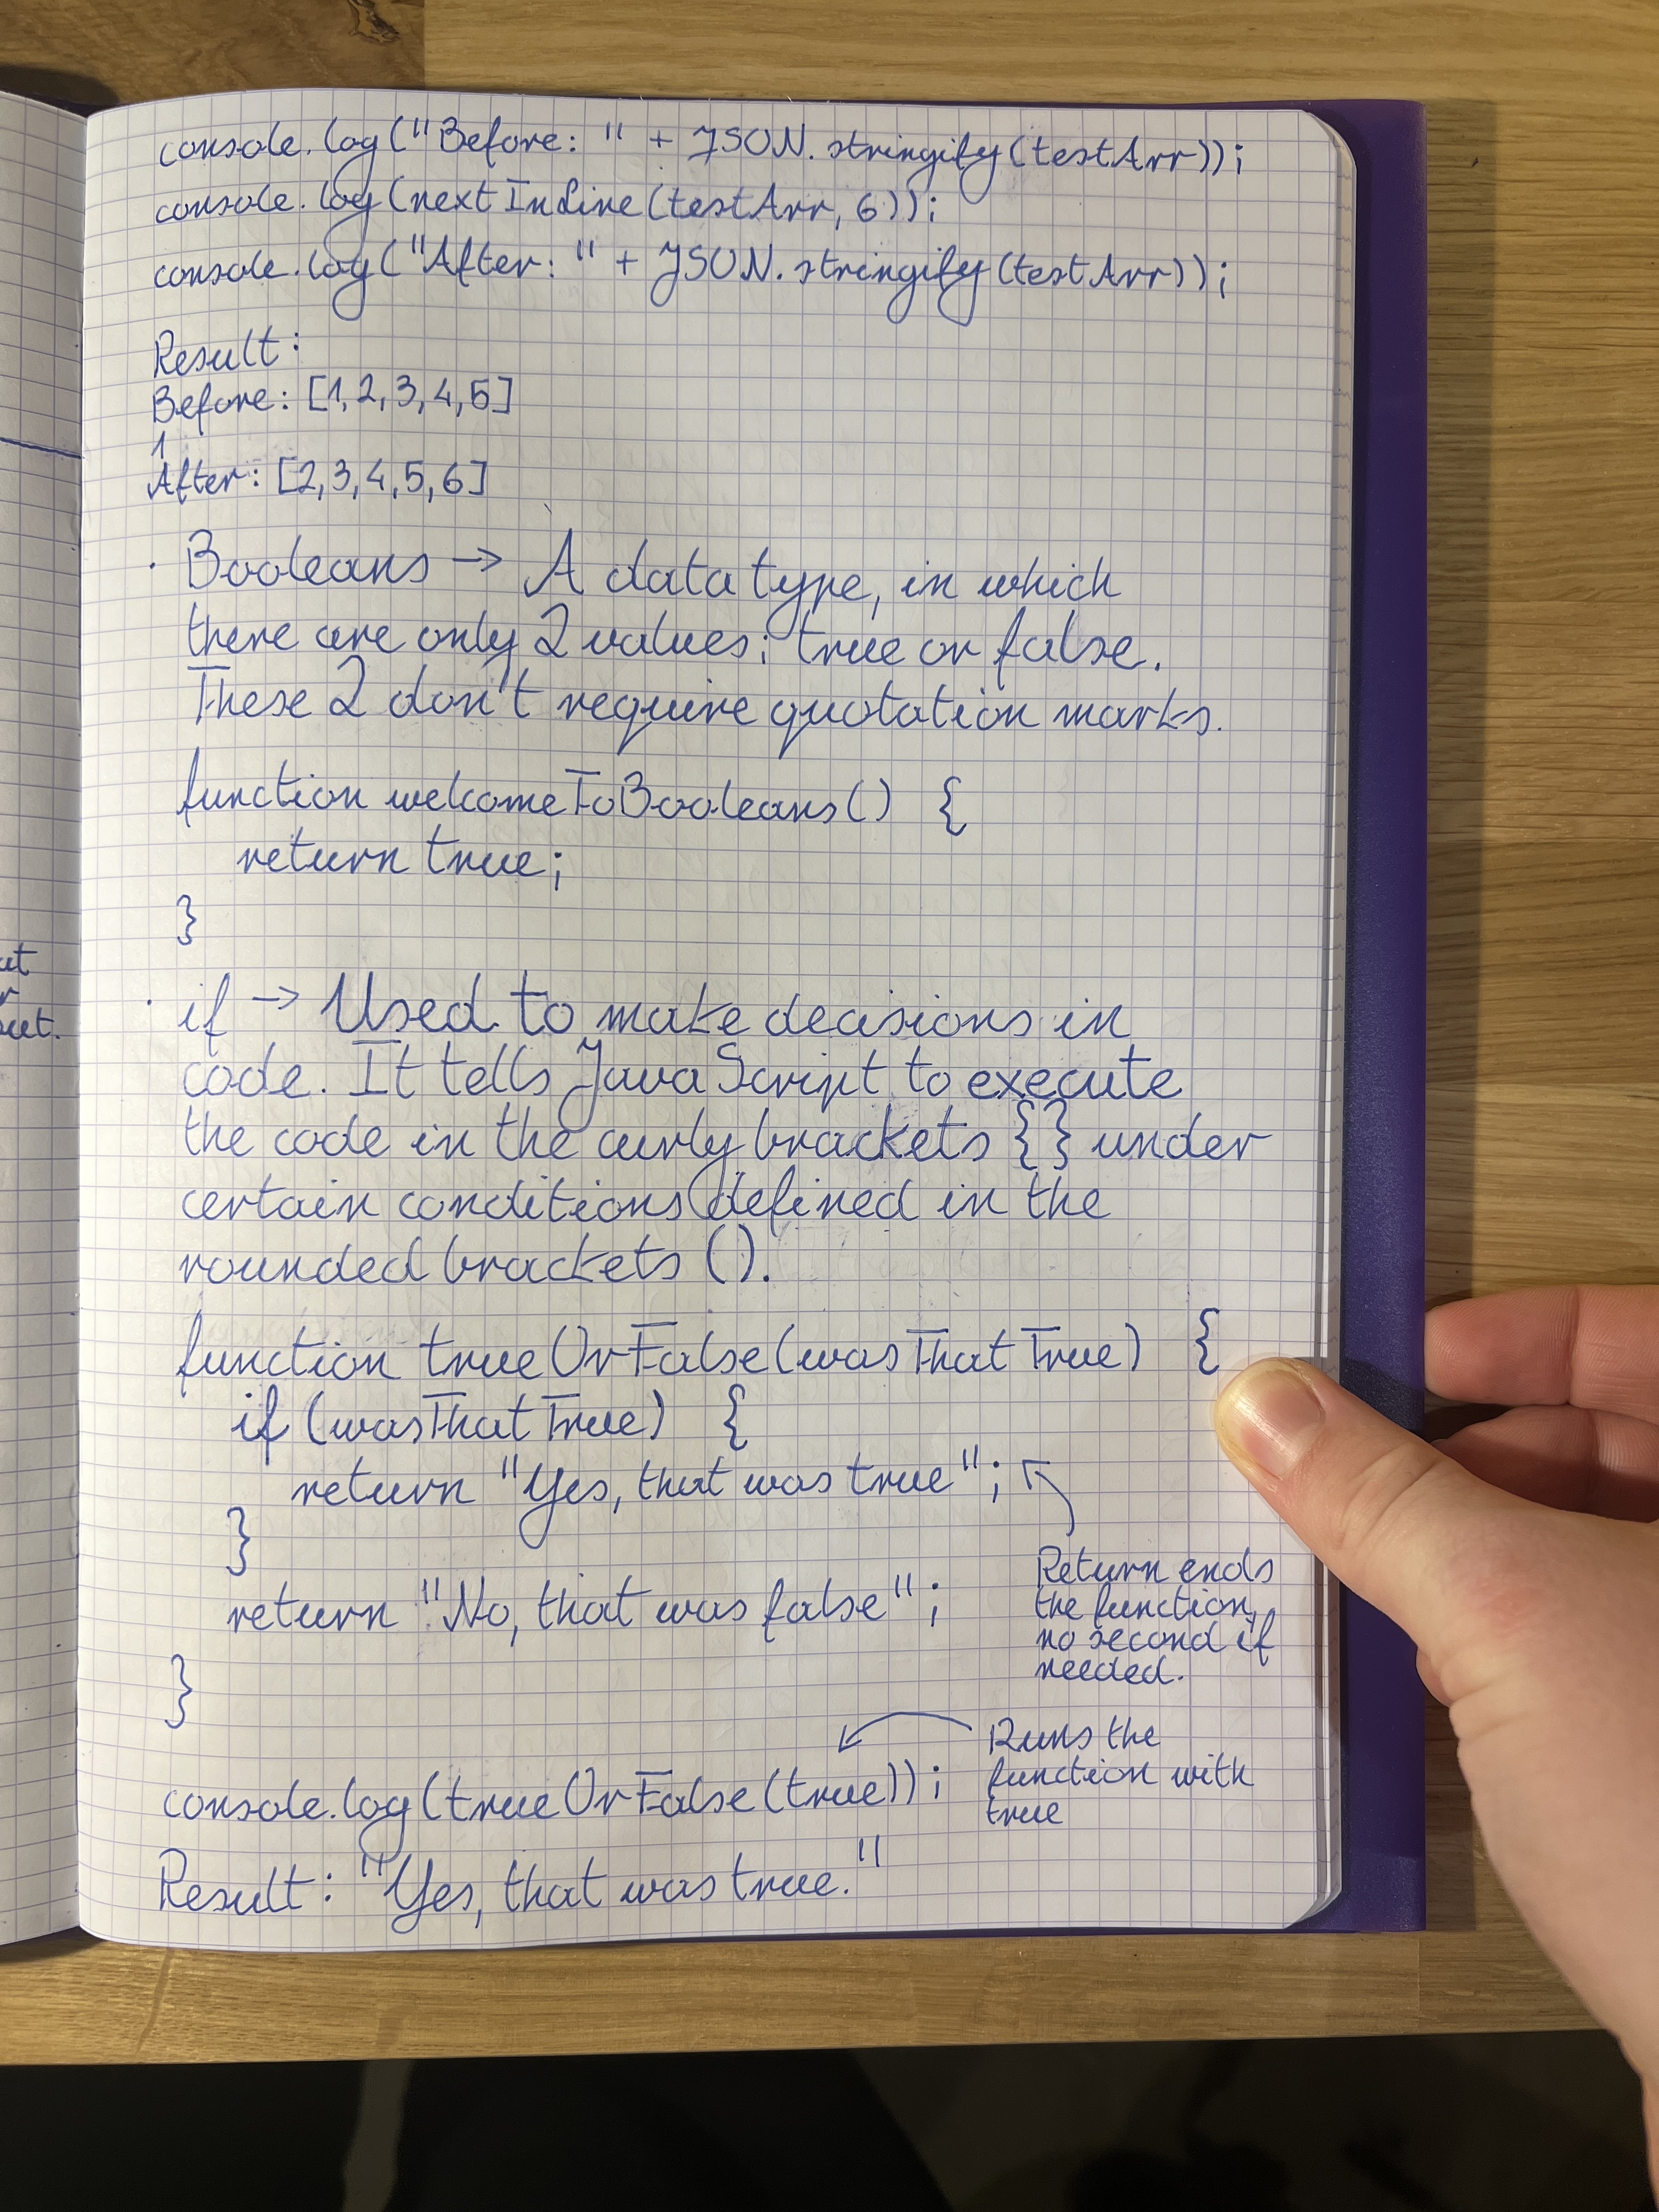 console.log("Before: " + JSON.stringify(testArr));
console.log(nextInLine(testArr, 6));
console.log("After: " + JSON.stringify(testArr));
Result:
Before: [1,2,3,4,5]
1
After: [2,3,4,5,6]
· Booleans → A data type, in which
there are only 2 values; true or false.
These 2 don't require quotation marks.
function welcomeToBooleans() {
return true;
}
· if → Used to make decisions in
code. It tells JavaScript to execute
the code in the curly brackets {} under
certain conditions defined in the
rounded brackets ().
function trueOrFalse(wasThatTrue) {
if (wasThatTrue) {
return "Yes, that was true";
}
return "No, that was false";
}
Return ends
the function,
no second if
needed.
console.log(trueOrFalse(true));
Runs the
function with
true
Result: "Yes, that was true."